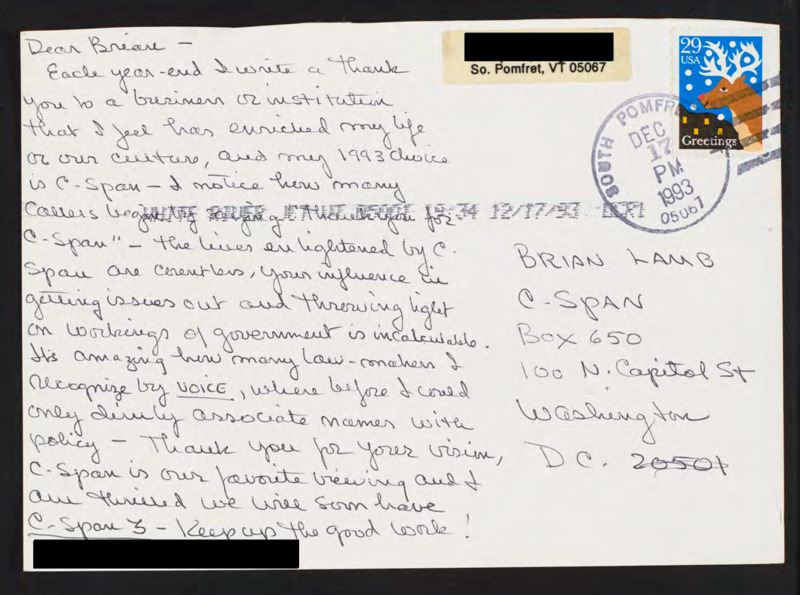 Dear Brian —
Each year-end I write a thank
you to a business or institution
that I feel has enriched my life
or our culture, and my 1993 choice
is C-Span — I notice how many
callers begin by saying "thank you for
C-Span" — the lives enlightened by C-
Span are countless, your influence in
getting issues out and throwing light
on workings of government is incalculable.
It's amazing how many law-makers I
recognize by VOICE, where before I could
only dimly associate names with
policy — Thank you for your vision,
C-Span is our favorite viewing and I
am thrilled we will soon have
C-Span 3 — Keep up the good work!
So. Pomfret, VT 05067
29
USA
Greetings
SOUTH POMFRET
DEC
17
PM
1993
05067
WHITE RIVER 18:34 12/17/93
BRIAN LAMB
C-SPAN
BOX 650
100 N. Capitol St
Washington
D.C. 20501